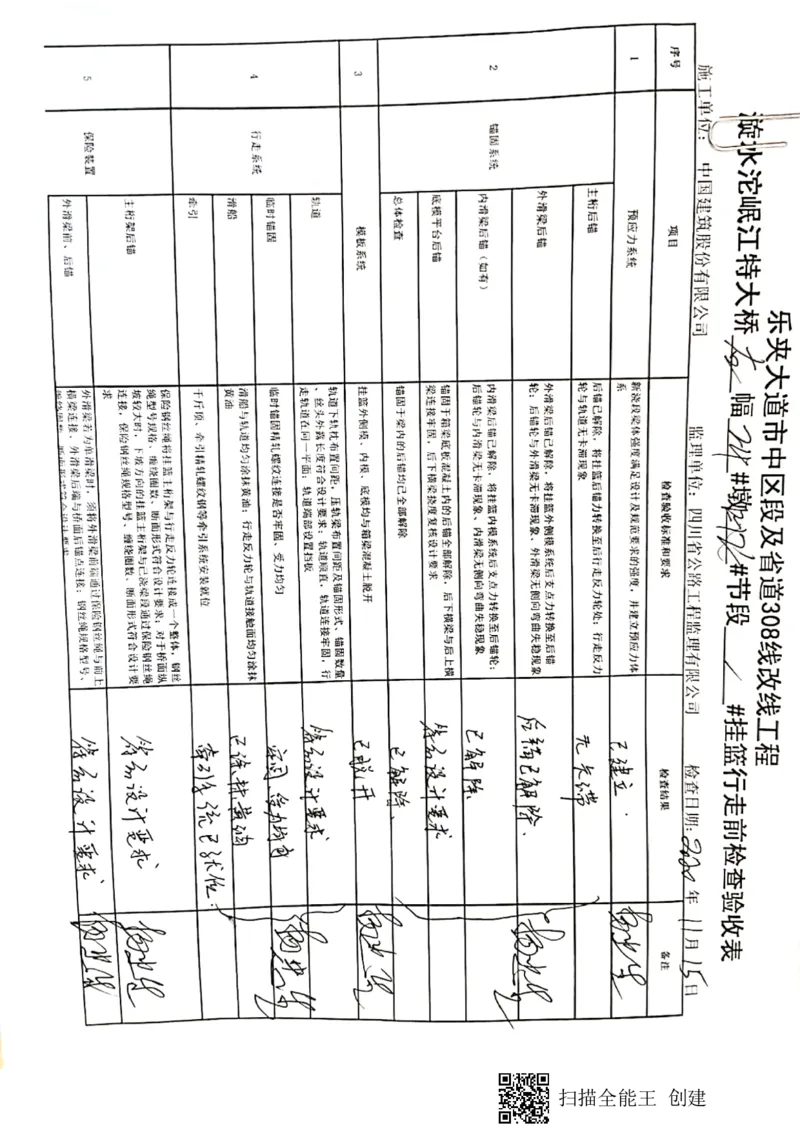 乐夹大道市中区段及省道308线改线工程
漩水沱岷江特大桥 幅 #墩 #节段 #挂篮行走前检查验收表
施工单位：中国建筑股份有限公司 监理单位：四川省公路工程监理有限公司 检查日期：2020年11月15日
序号 项目 检查验收标准和要求 检查结果 备注
1 预应力系统 新浇段梁体强度满足设计及规范要求的强度，并建立预应力体系 已建立.
2 锚固系统
主桁后锚 后锚已解除，将挂篮后锚力转换至后行走反力轮处；行走反力轮与轨道无卡滞现象 无卡滞
外滑梁后锚 外滑梁后锚已解除，将挂篮外侧模系统后支点力转换至后锚轮；后锚轮与外滑梁无卡滞现象、外滑梁无侧向弯曲失稳现象 后锚已解除、
内滑梁后锚（如有） 内滑梁后锚已解除，将挂篮内模系统后支点力转换至后锚轮；后锚轮与内滑梁无卡滞现象、内滑梁无侧向弯曲失稳现象 已解除、
底模平台后锚 锚固于箱梁底板混凝土内的后锚全部解除，后下横梁与后上横梁连接牢固，后下横梁挠度复核设计要求 符合设计要求
总体检查 锚固于梁内的后锚均已全部解除 已解除、
3 模板系统 挂篮外侧模、内模、底模均与箱梁混凝土脱开 已脱开
4 行走系统
轨道 轨道下轨枕布置间距、压轨梁布置间距及锚固形式、锚固数量、丝头外露长度符合设计要求；轨道顺直，轨道连接牢固，行走轨道在同一平面；轨道端部设置挡板 符合设计要求
临时锚固 临时锚固精轧螺纹连接是否牢固、受力均匀 牢固、受力均匀
滑船 滑船与轨道均匀涂抹黄油；行走反力轮与轨道接触面均匀涂抹黄油 已涂抹黄油
牵引 千斤顶、牵引精轧螺纹钢等牵引系统安装就位 牵引系统已就位.
5 保险装置
主桁架后锚 保险钢丝绳将挂篮主桁架与行走反力轮连接成一个整体，钢丝绳型号规格、缠绕圈数、断面形式符合设计要求，对于桥面纵坡较大时，下坡方向的挂篮主桁架与已浇梁段通过保险钢丝绳连接，保险钢丝绳规格型号、缠绕圈数、断面形式符合设计要求 符合设计要求
外滑梁前、后锚 外滑梁若为单滑梁时，须将外滑梁前端通过保险钢丝绳与前上横梁连接，外滑梁后端与桥面后锚点连接；钢丝绳规格型号、缠绕圈数、断面形式符合设计要求 符合设计要求
扫描全能王 创建